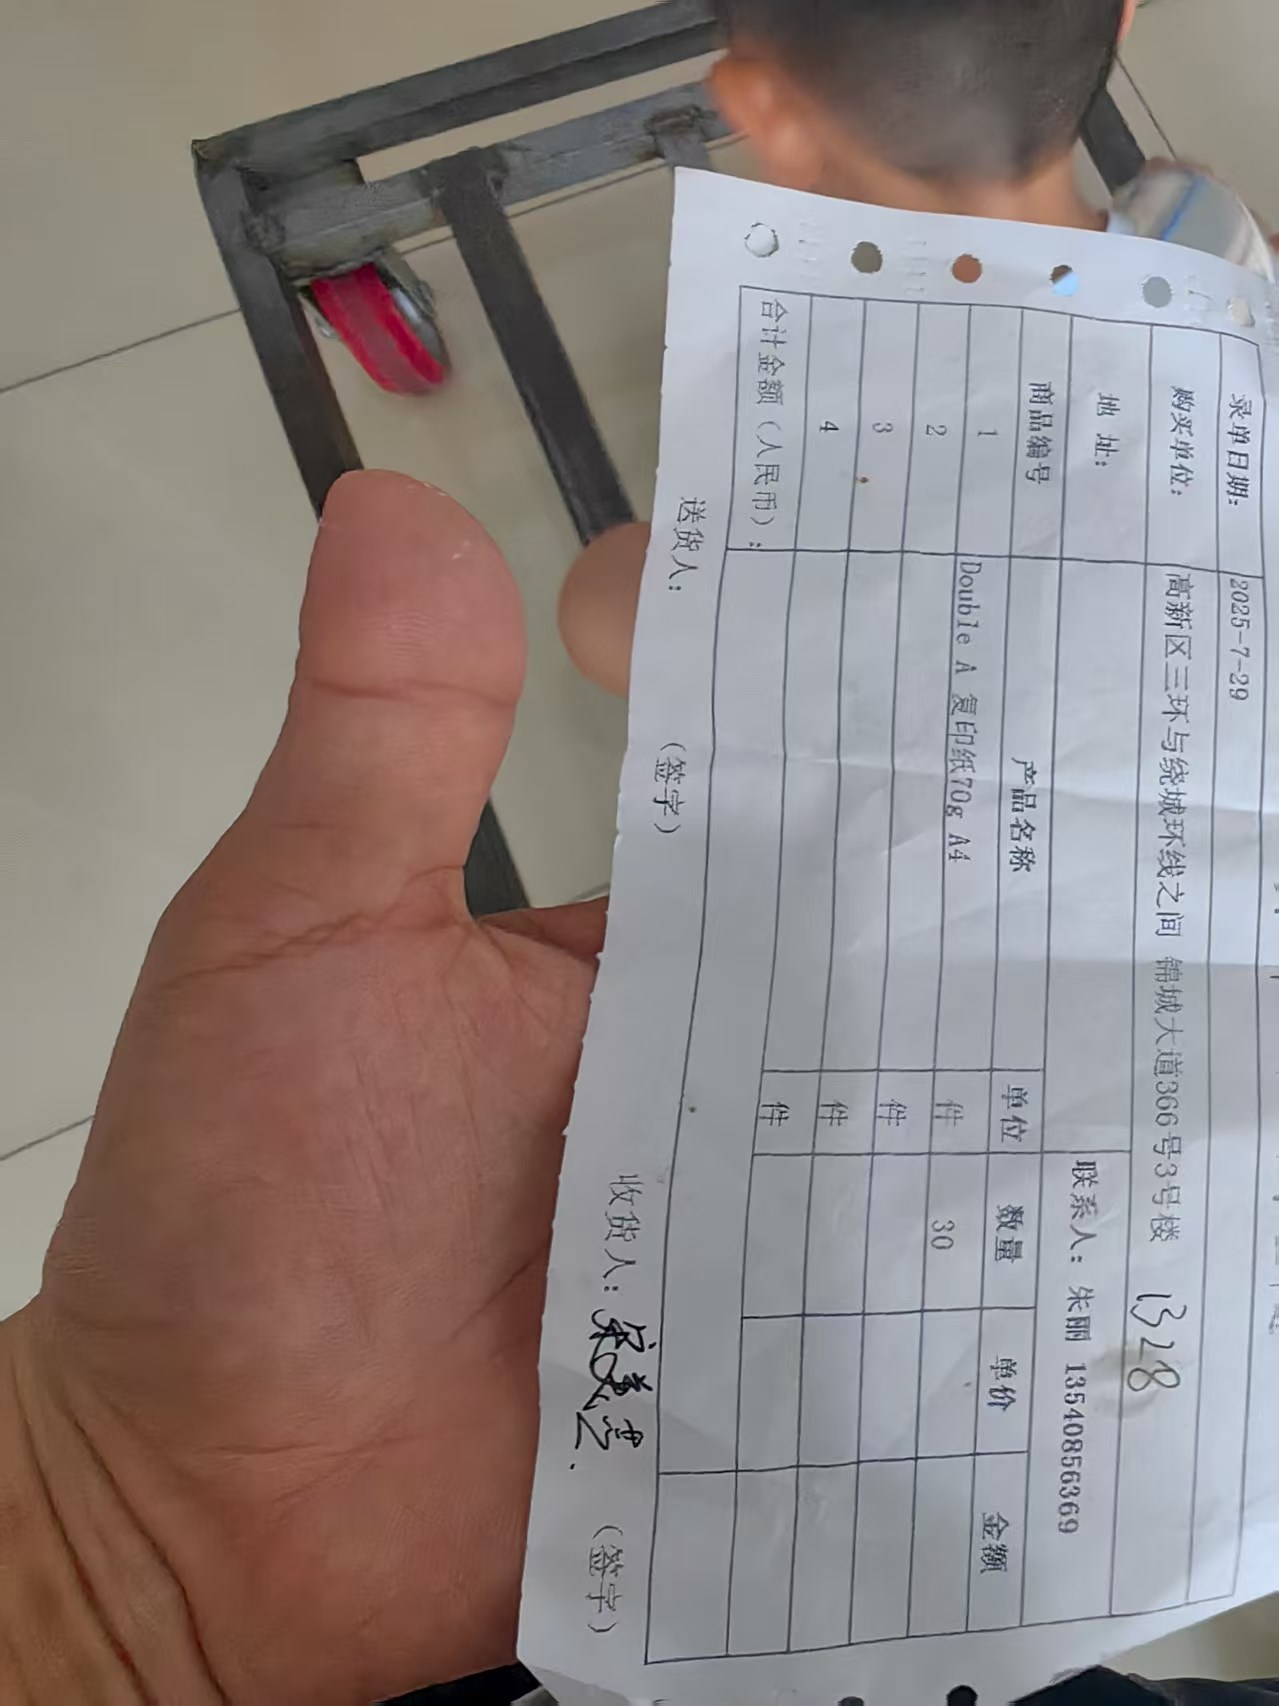 录单日期: 2025-7-29
购买单位: 高新区三环与绕城环线之间 锦城大道366号3号楼 1328
地 址: 联系人: 朱丽 13540856369
商品编号 产品名称 单位 数量 单价 金额
1 Double A 复印纸70g A4 件 30
2 件
3 件
4 件
合计金额（人民币）:
送货人: （签字） 收货人: （签字）